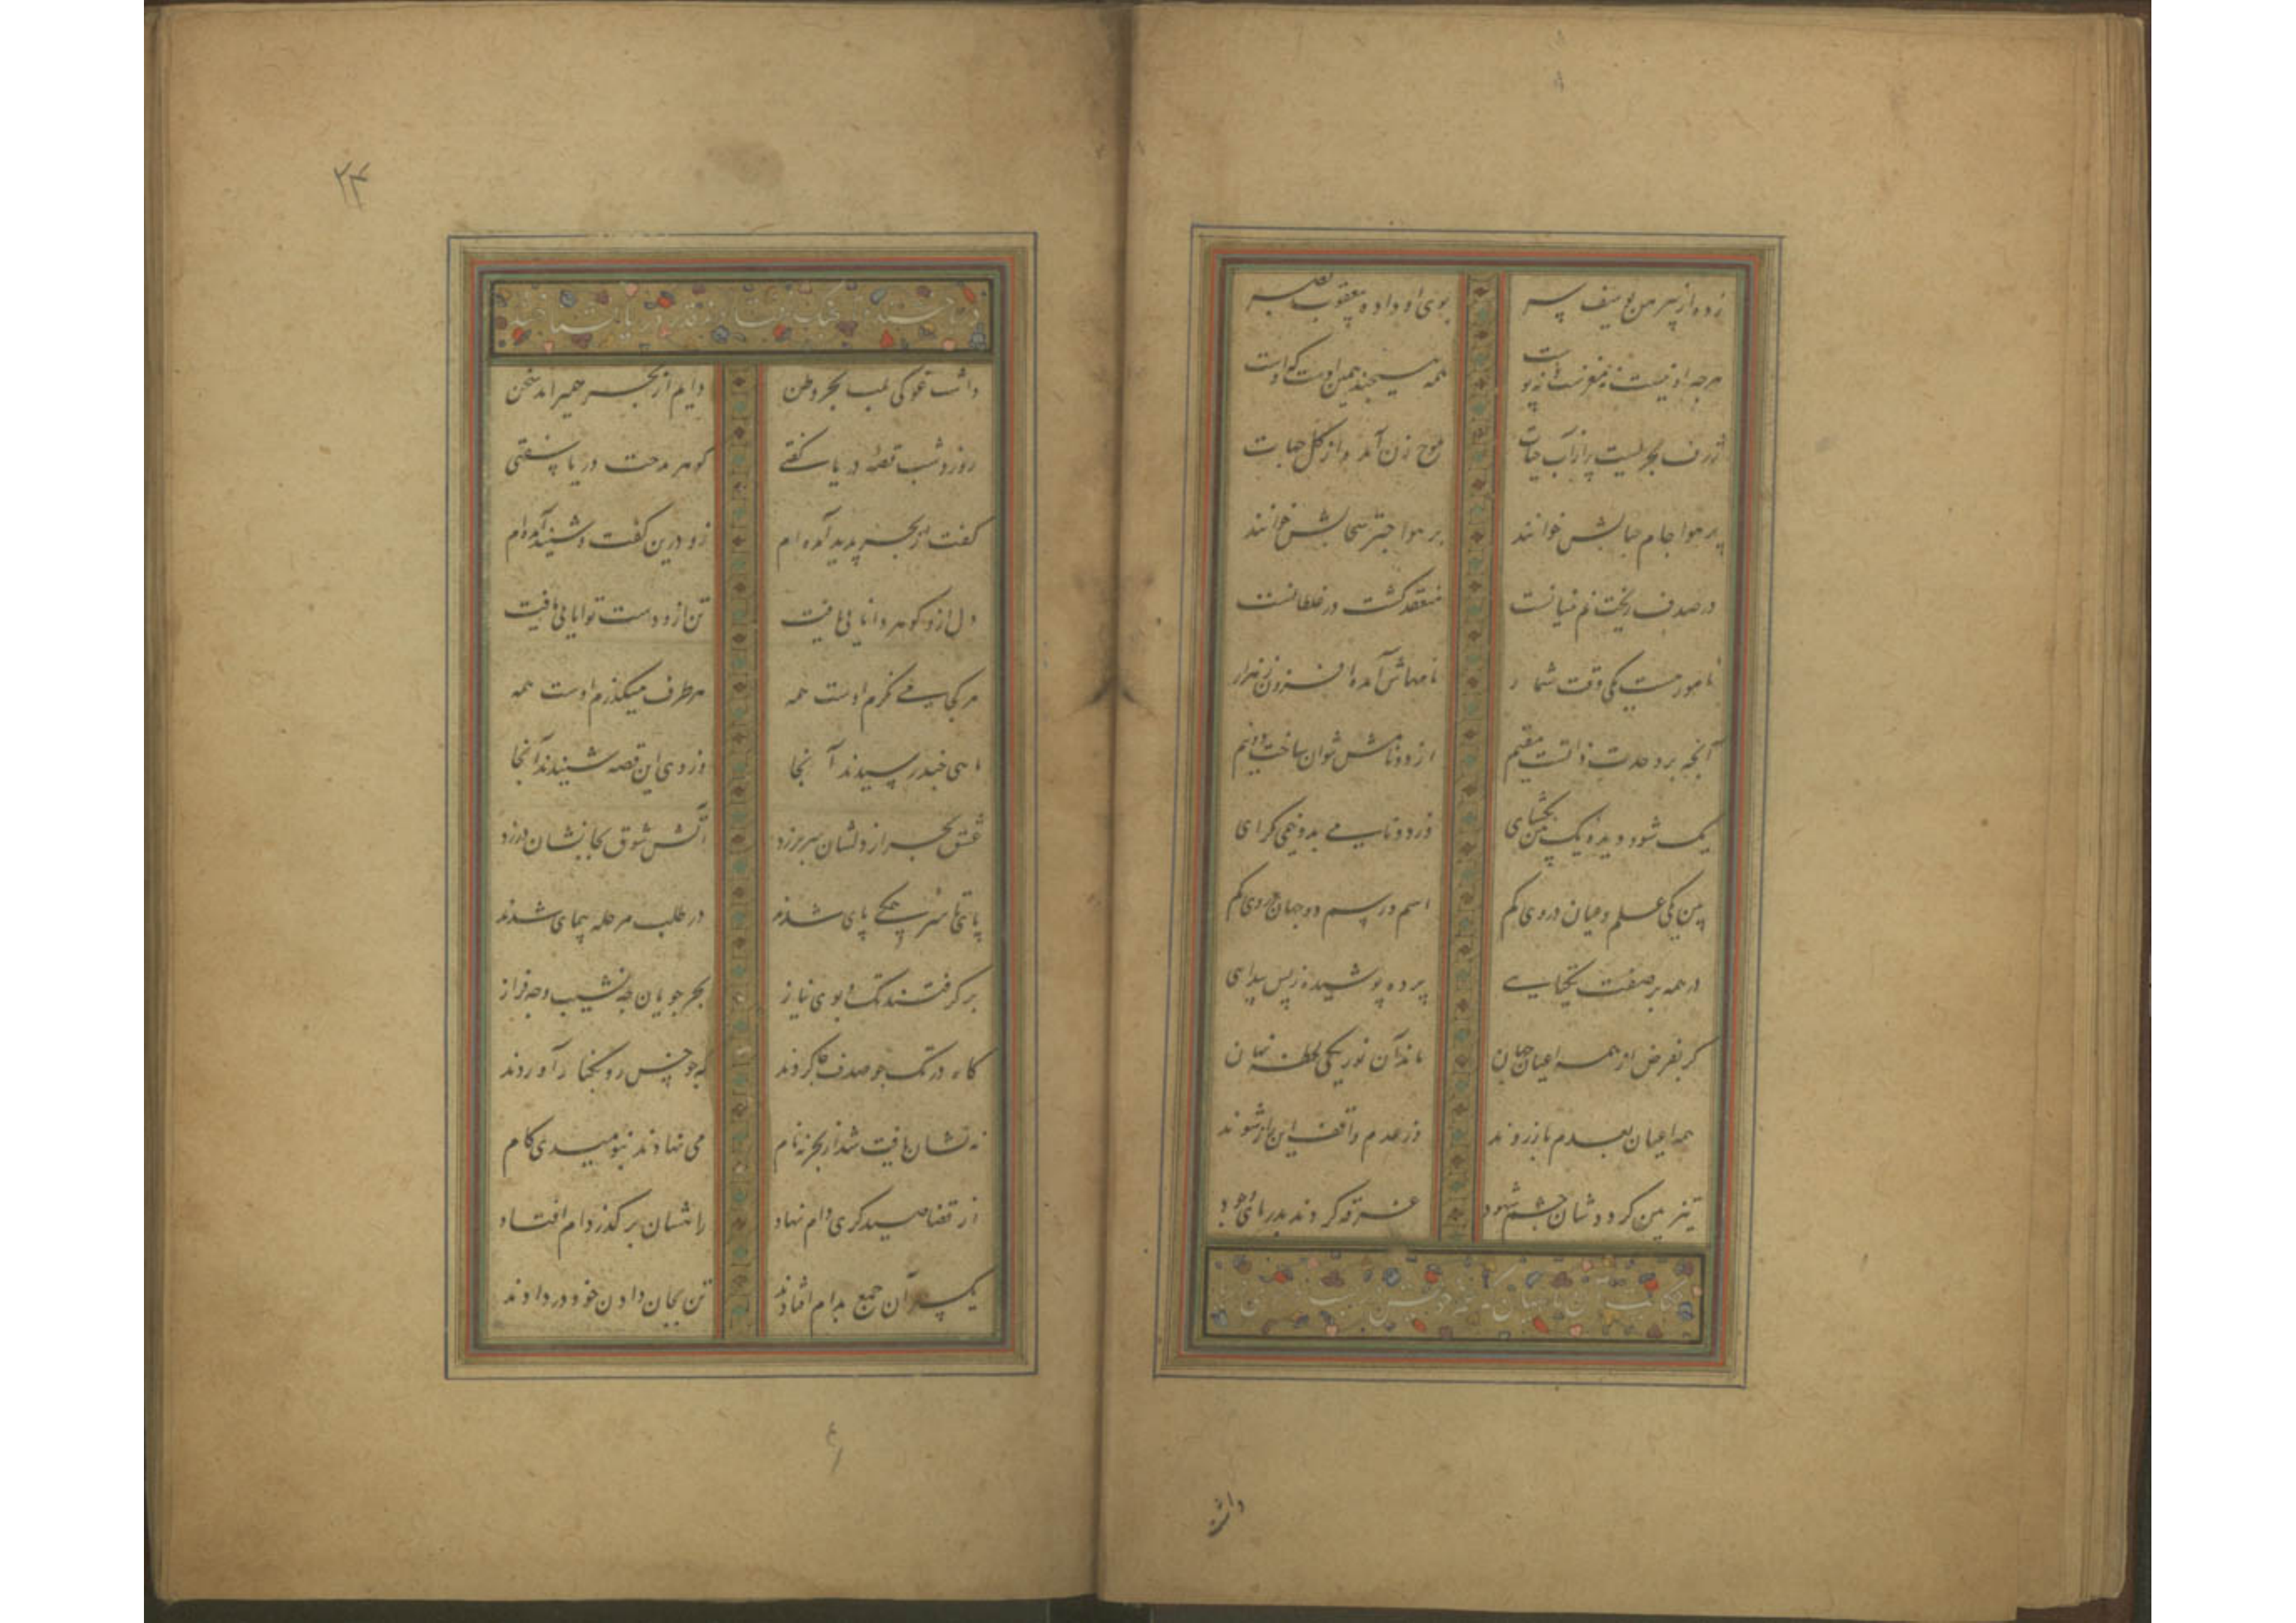 زده از پیرهن یوسف سر بوی او داده بیعقوب بصر
هرچه او نیست نه مغزست و نه پوست همه هیچند همین اوست که اوست
ژرف بحریست پر از آب حیات موج زن آمده از کل جهات
بر هوا جام حبابش خوانند بر هوا چتر سحابش خوانند
در صدف ریخت نم نیسانست منعقد گشت در غلطانست
نامور هست یکی وقت شمار نامهاش آمده افزون ز هزار
آنچه بر وحدت ذاتست مقیم از دو نامش نتوان ساخت دو نیم
یک شو و دیده یک بین بکشای وز دو تایی بدو خمی کرای
بین یکی علم و عیان در وی کم اسم و رسم دو جهان در وی کم
در همه بر صفت یکتایی پرده پوشیده ز بس پیدایی
کر بفرض از همه اعیان جهان ماند آن نور یکی لحظه نهان
همه اعیان بعدم باز روند وز عدم واقف این راز شوند
تیزبین کرددشان چشم شهود غرقه کردند بدریای وجود
حکایت آن ماهیان که
داشت
۲۴
داشت غوکی بلب بحر وطن دایم از بحر همی راند سخن
روز و شب قصه دریا گفتی گوهر مدحت دریا سفتی
گفت از بحر پدید آمده‌ام زو درین گفت و شنید آمده‌ام
دل ازو گوهر دانایی یافت تن ازو دست توانایی یافت
هر کجا می‌نگرم اوست همه هر طرف میگذرم اوست همه
ماهیی چند رسیدند آنجا وز وی این قصه شنیدند آنجا
عشق بحر از دلشان سر بر زد آتش شوق بجانشان در زد
پای تا سر همگی پای شدند در طلب مرحله پیمای شدند
بر گرفتند تک و پوی نیاز بحر جویان چه نشیب و چه فراز
گاه در تک چو صدف جا کردند گه چو خس رو بکنار آوردند
نه نشان یافت شد از بحر نه نام می نهادند بنومیدی گام
از قضا صیدگری دام نهاد راهشان بر گذر دام افتاد
یکسر آن جمع بدام افتادند تن بجان دادن خود در دادند